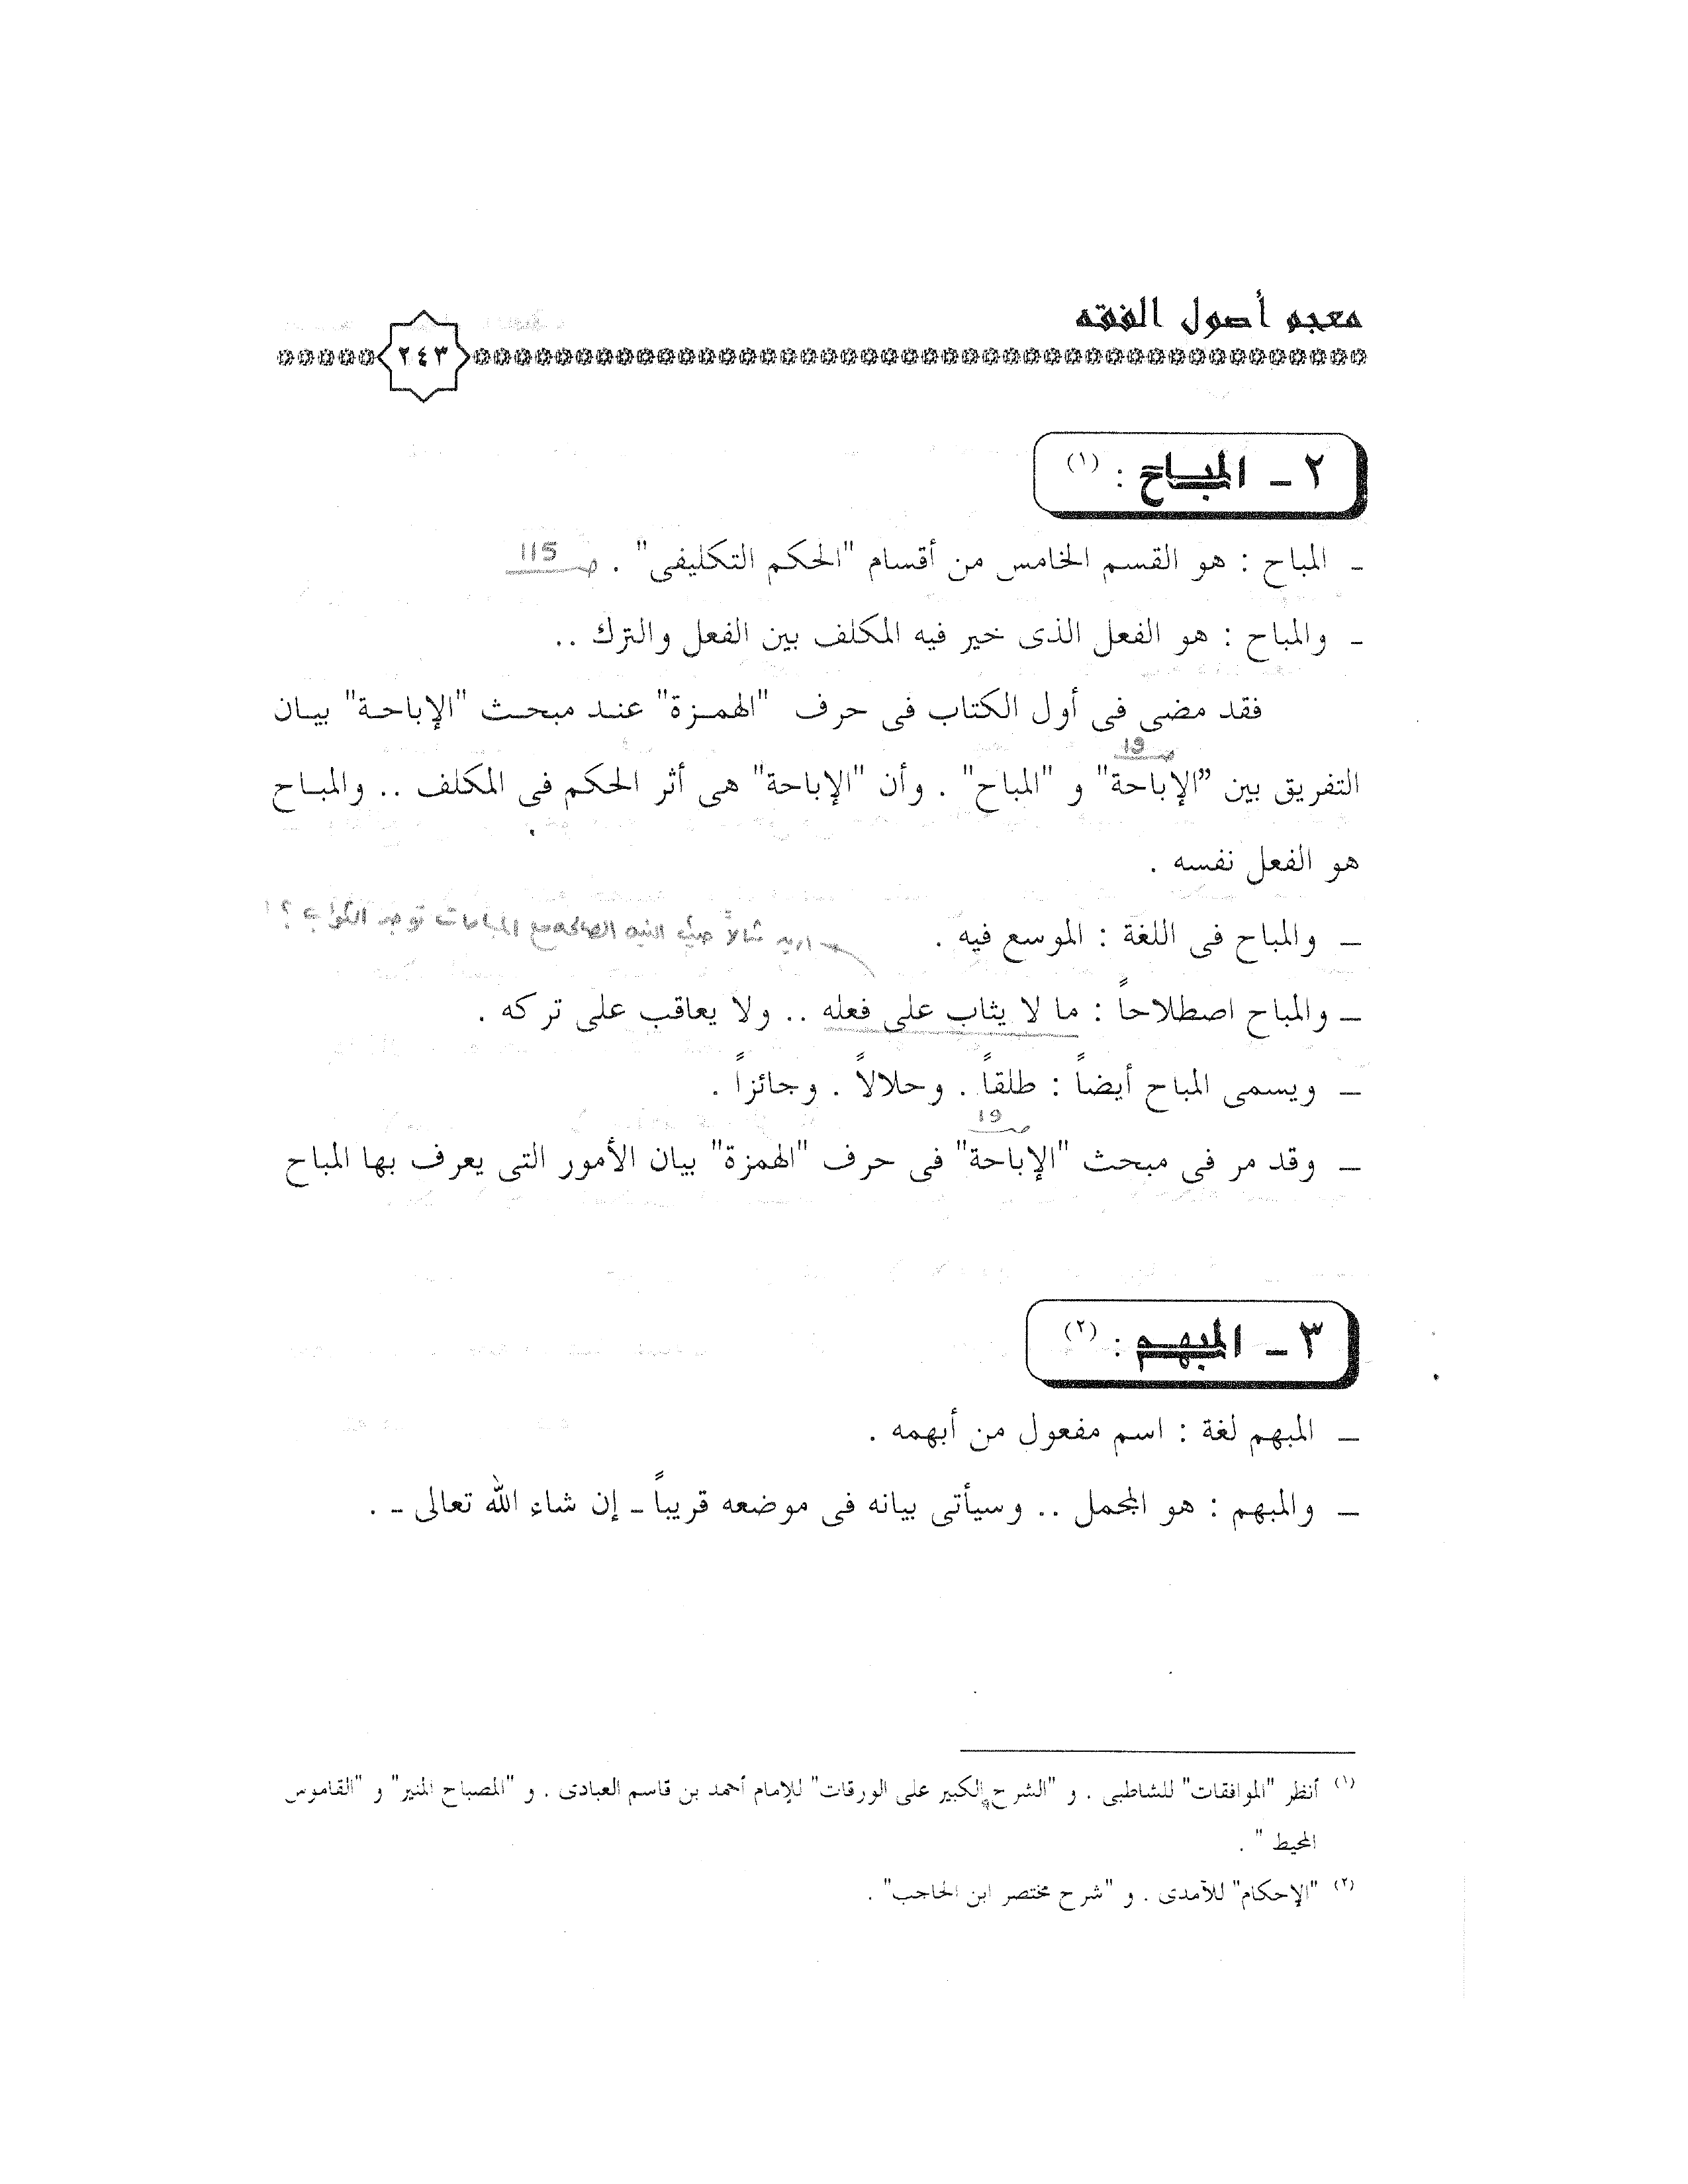 معجم أصول الفقه
٢٤٣
٢ ـ المباح : (١)
ـ المباح : هو القسم الخامس من أقسام "الحكم التكليفى" . صـ 115
ـ والمباح : هو الفعل الذى خير فيه المكلف بين الفعل والترك ..
فقد مضى فى أول الكتاب فى حرف "الهمـزة" عنـد مبحـث "الإباحـة" بيـان
صـ 19
التفريق بين "الإباحة" و "المباح" . وأن "الإباحة" هى أثر الحكم فى المكلف .. والمبـاح
هو الفعل نفسه .
ـ والمباح فى اللغة : الموسع فيه .
ـ والمباح اصطلاحاً : ما لا يثاب على فعله .. ولا يعاقب على تركه .
ـ ويسمى المباح أيضاً : طلقاً . وحلالاً . وجائزاً .
صـ 19
ـ وقد مر فى مبحث "الإباحة" فى حرف "الهمزة" بيان الأمور التى يعرف بها المباح
٣ ـ المبهم : (٢)
ـ المبهم لغة : اسم مفعول من أبهمه .
ـ والمبهم : هو المجمل .. وسيأتى بيانه فى موضعه قريباً ـ إن شاء الله تعالى ـ .
(١) أنظر "الموافقات" للشاطبى . و "الشرح الكبير على الورقات" للإمام أحمد بن قاسم العبادى . و "المصباح المنير" و "القاموس
المحيط " .
(٢) "الإحكام" للآمدى . و "شرح مختصر ابن الحاجب" .